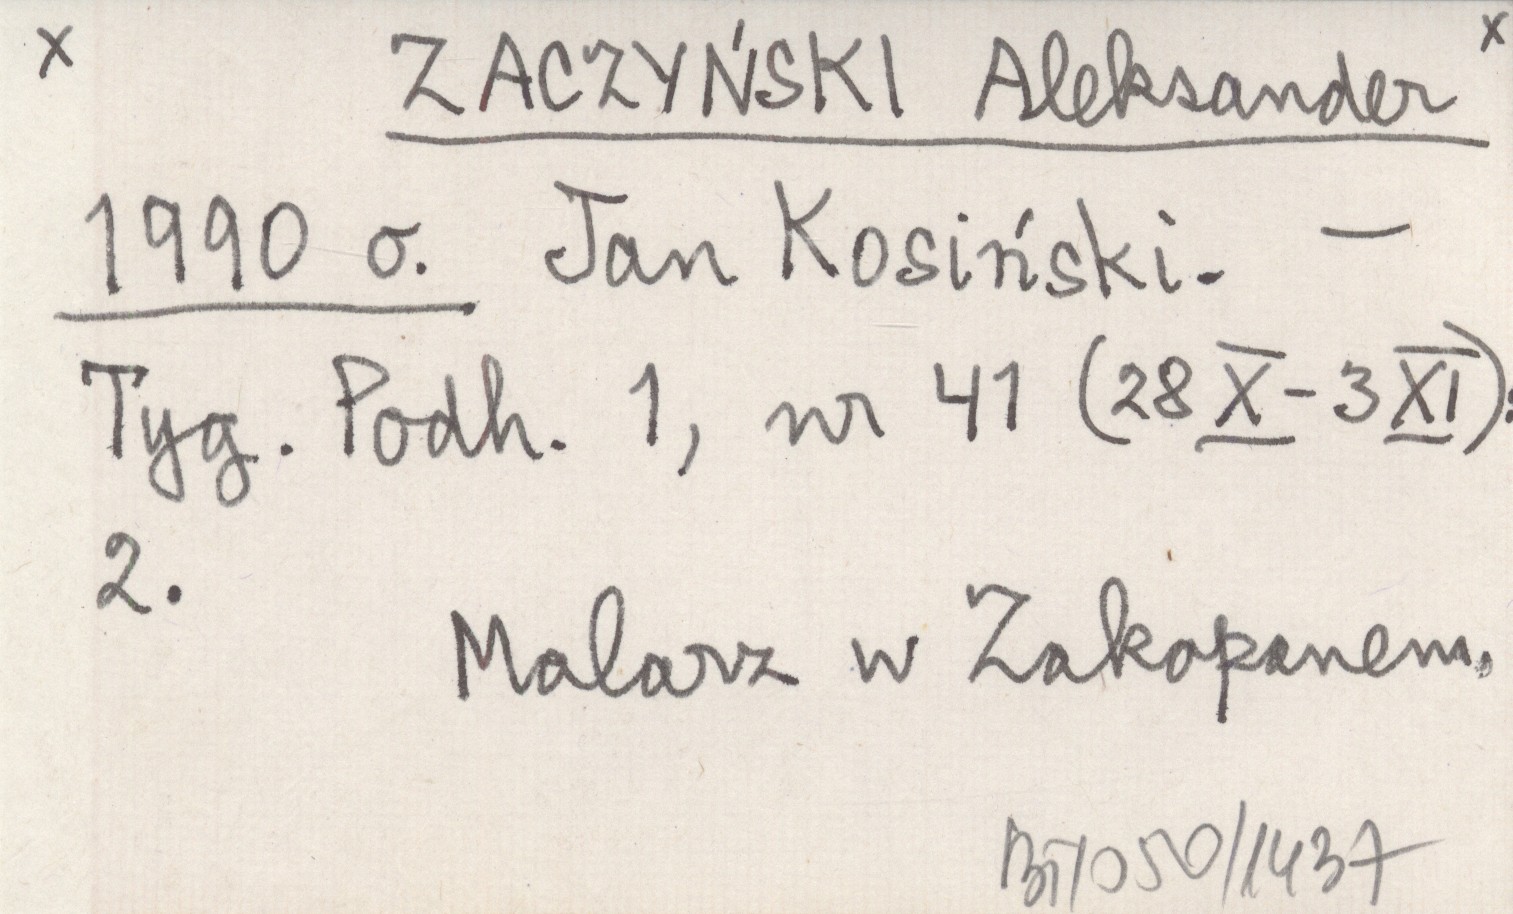 x ZACZYŃSKI Aleksander x
1990 o. Jan Kosiński. —
Tyg. Podh. 1, nr 41 (28 X - 3 XI):
2.
Malarz w Zakopanem.
BT/050/1437